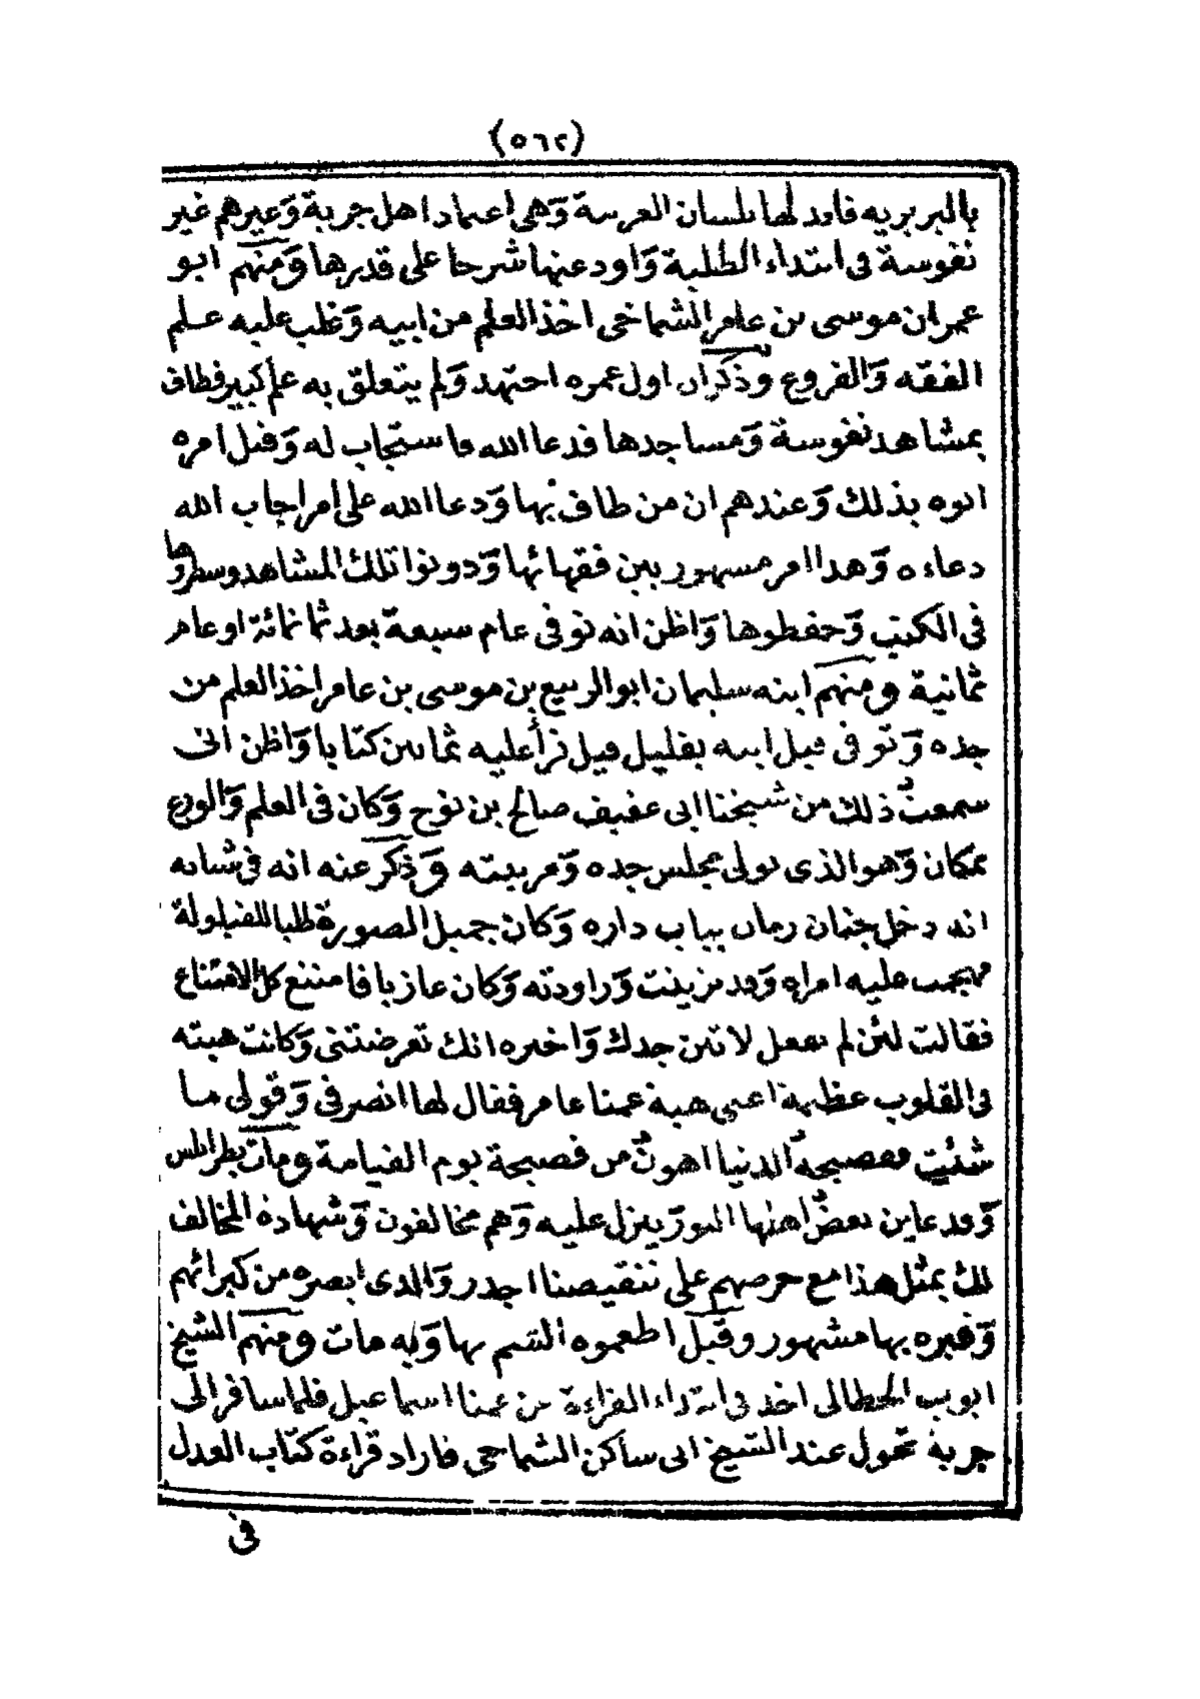 (٥٦٢)
بالبربريه فابدلها بلسان العربية وهى اعتماد اهل جربة وغيرهم غير
نفوسة فى ابتداء الطلبة واود عنها شرحا على قدرها ومنهم ابو
عمران موسى بن عامر الشماخى اخذ العلم من ابيه وغلب عليه علم
الفقه والفروع وذكر ان اول عمره اجتهد ولم يتعلق به علم كبير فطاف
بمشاهد نفوسة ومساجدها فدعا الله فاستجاب له وقيل امره
ابوه بذلك وعندهم ان من طاف بها ودعا الله على امر اجاب الله
دعاءه وهذا امر مشهور بين فقهائها ودونوا تلك المشاهد وسطروها
فى الكتب وحفظوها واظن انه توفى عام سبعة بعد ثمانمائة او عام
ثمانية ومنهم ابنه سليمان ابو الربيع بن موسى بن عامر اخذ العلم من
جده وتوفى قبل ابيه بقليل قيل قرأ عليه ثمانين كتابا واظن انى
سمعت ذلك من شيخنا ابى عفيف صالح بن نوح وكان فى العلم والورع
بمكان وهو الذى تولى مجلس جده وتربيته وذكر عنه انه فى شبابه
انه دخل جنان رمان بباب داره وكان جميل الصورة طلبا للقيلولة
فهجمت عليه امراه وقد تزينت وراودته وكان عازبا فامتنع كل الامتناع
فقالت لئن لم تفعل لاتين جدك واخبره انك تعرضتنى وكانت هيبته
فى القلوب عظيمة اعنى هيبة عمنا عامر فقال لها انصرفى وقولى ما
شئت ففضيحة الدنيا اهون من فضيحة يوم القيامة ومات بطرابلس
وقد عاين بعض اهلها النور ينزل عليه وهم مخالفون وشهادة المخالف
لك بمثل هذا مع حرصهم على تنقيصنا اجدر والذى ابصره من كبرائهم
وقبره بها مشهور وقيل اطعموه السم بها وبه مات ومنهم الشيخ
ايوب الجطالى اخذ فى ابتداء القراءة عن عمنا اسماعيل فلما سافر الى
جربة تحول عند الشيخ ابى ساكن الشماخى فاراد قراءة كتاب العدل
فى